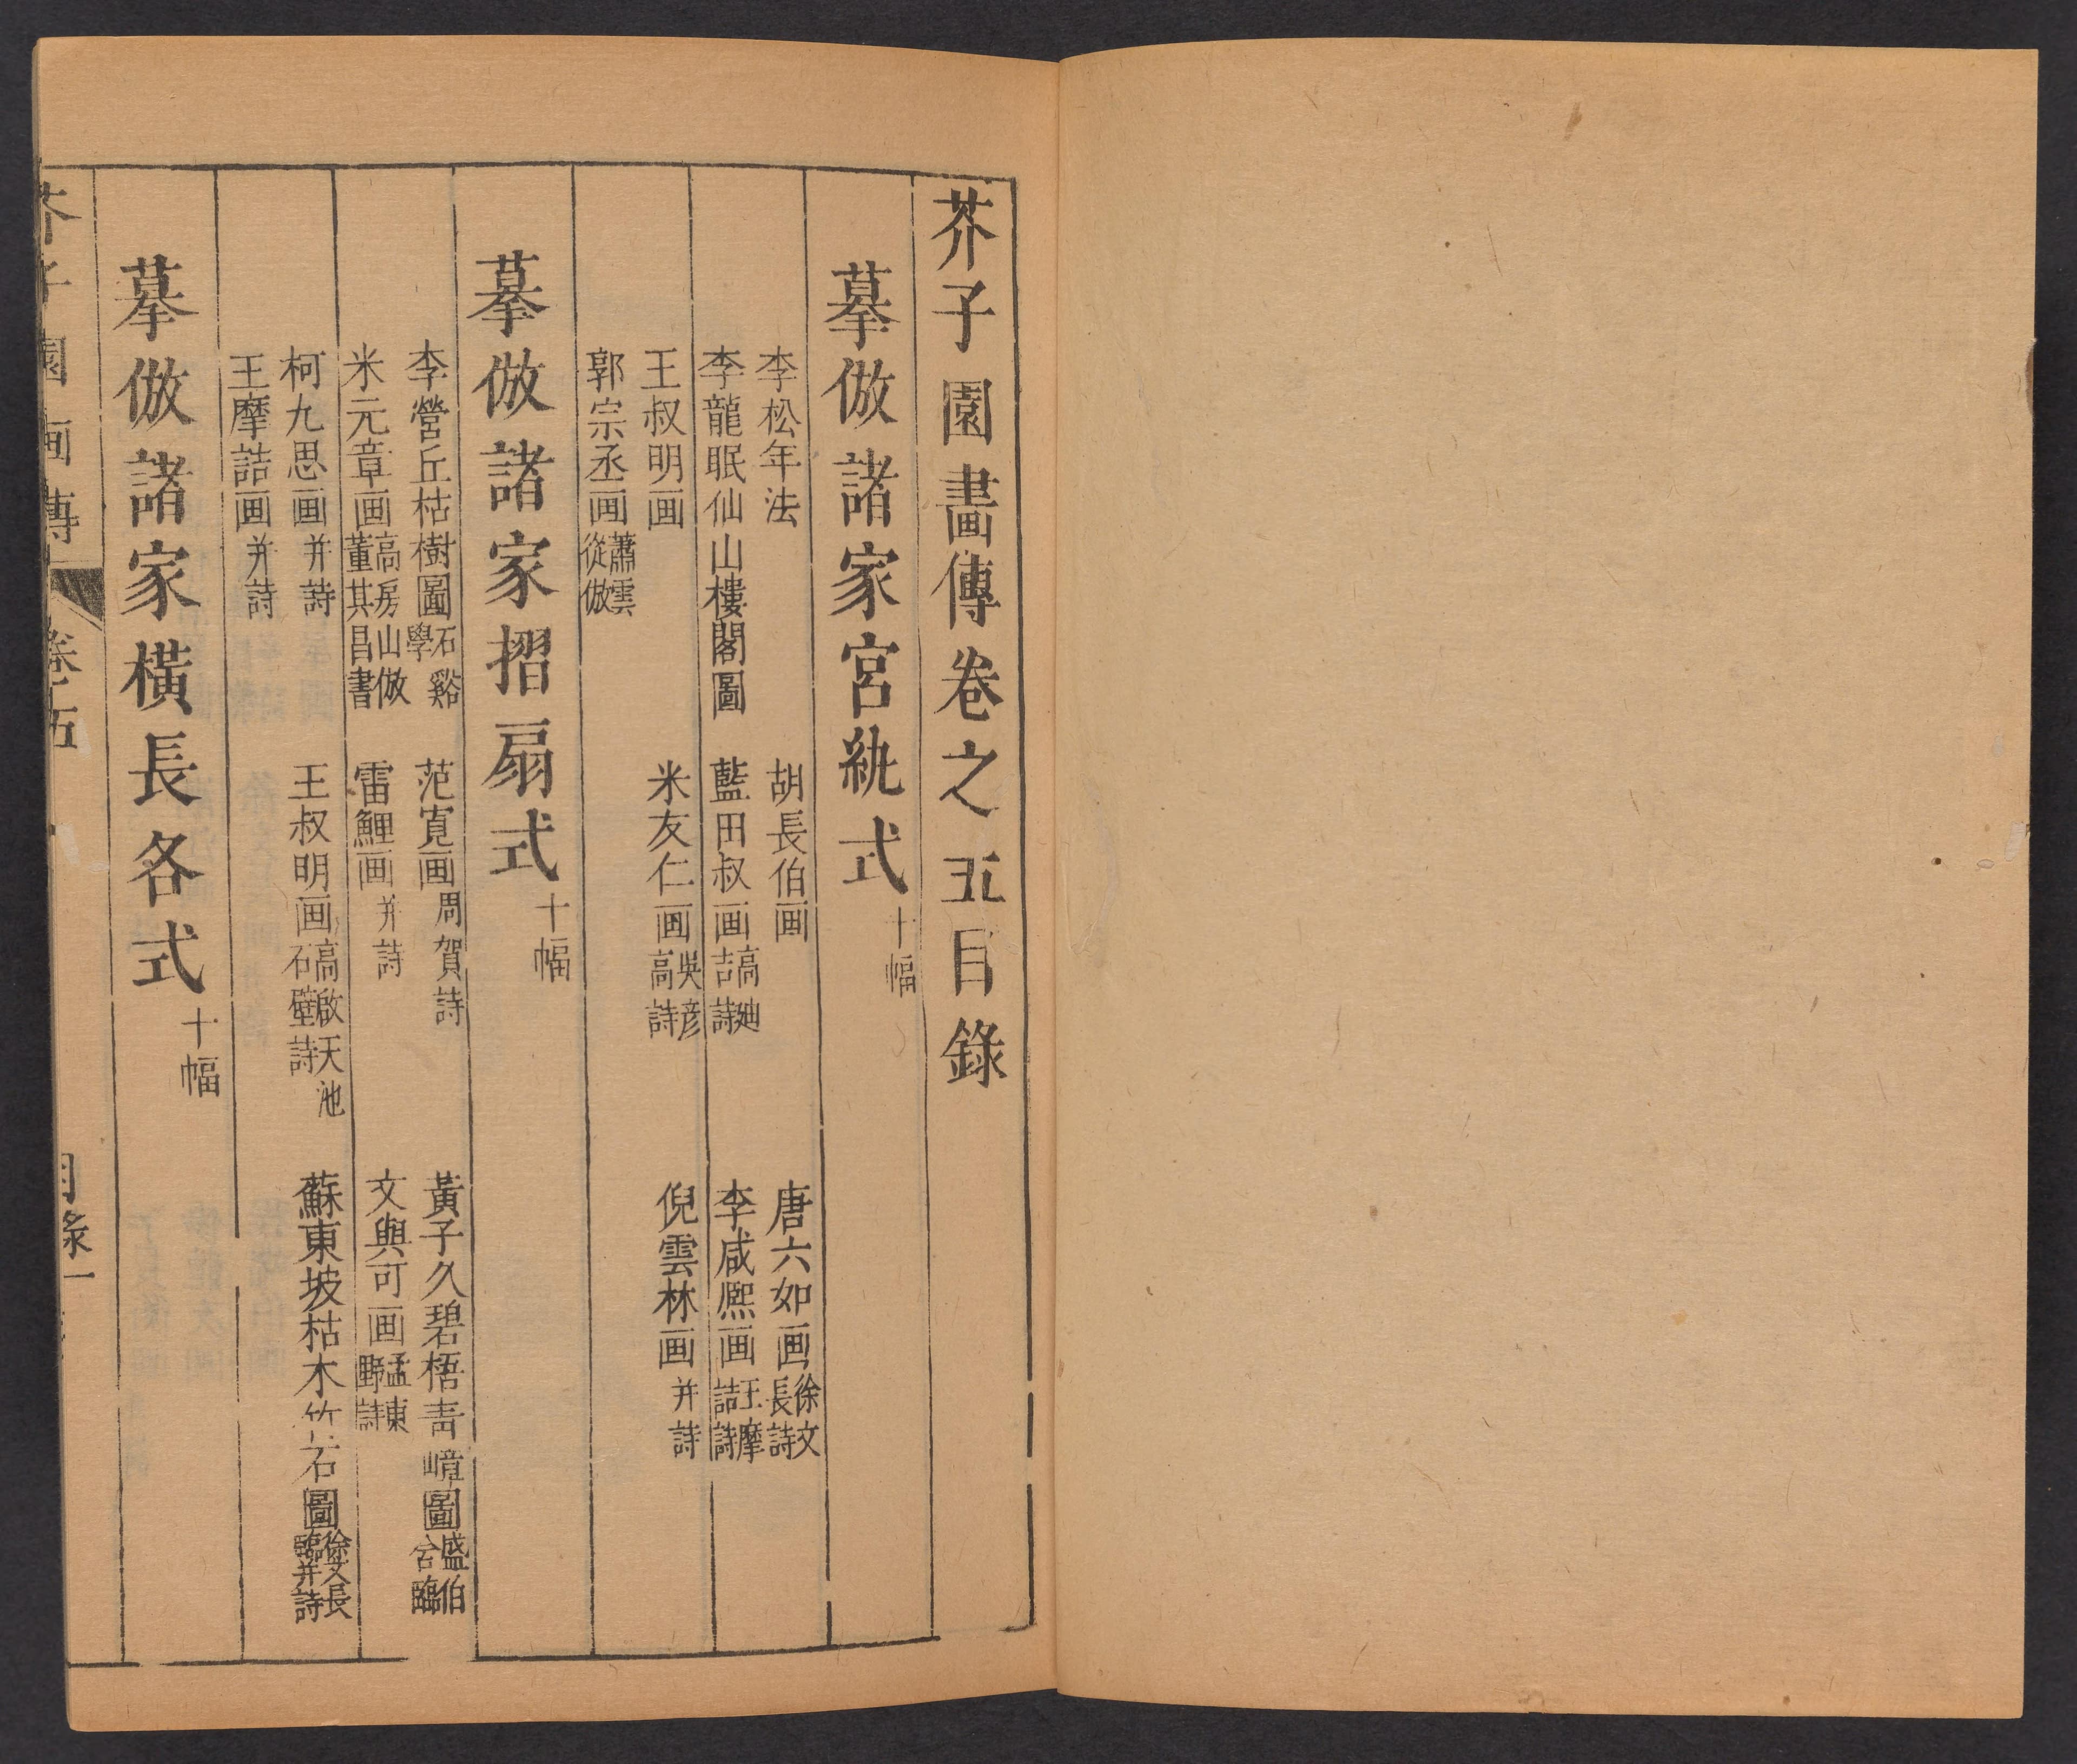 芥子園畫傳卷之五目錄
摹倣諸家宮紈式十幅
李松年法　胡長伯画　唐六如画徐文長詩
李龍眠仙山樓閣圖　藍田叔画高廸吉詩　李咸熈画王摩詰詩
王叔明画　米友仁画吳彦高詩　倪雲林画并詩
郭宗丞画蕭雲從倣
摹倣諸家摺扇式十幅
李營丘枯樹圖石谿學　范寬画周賀詩　黃子久碧梧靑嶂圖盛伯含臨
米元章画高房山倣董其昌書　雷鯉画并詩　文與可画孟東野詩
柯九思画并詩　王叔明画高啟天池石壁詩　蘇東坡枯木竹石圖徐文長臨并詩
王摩詰画并詩
摹倣諸家橫長各式十幅
芥子園画傳　卷五　目錄一